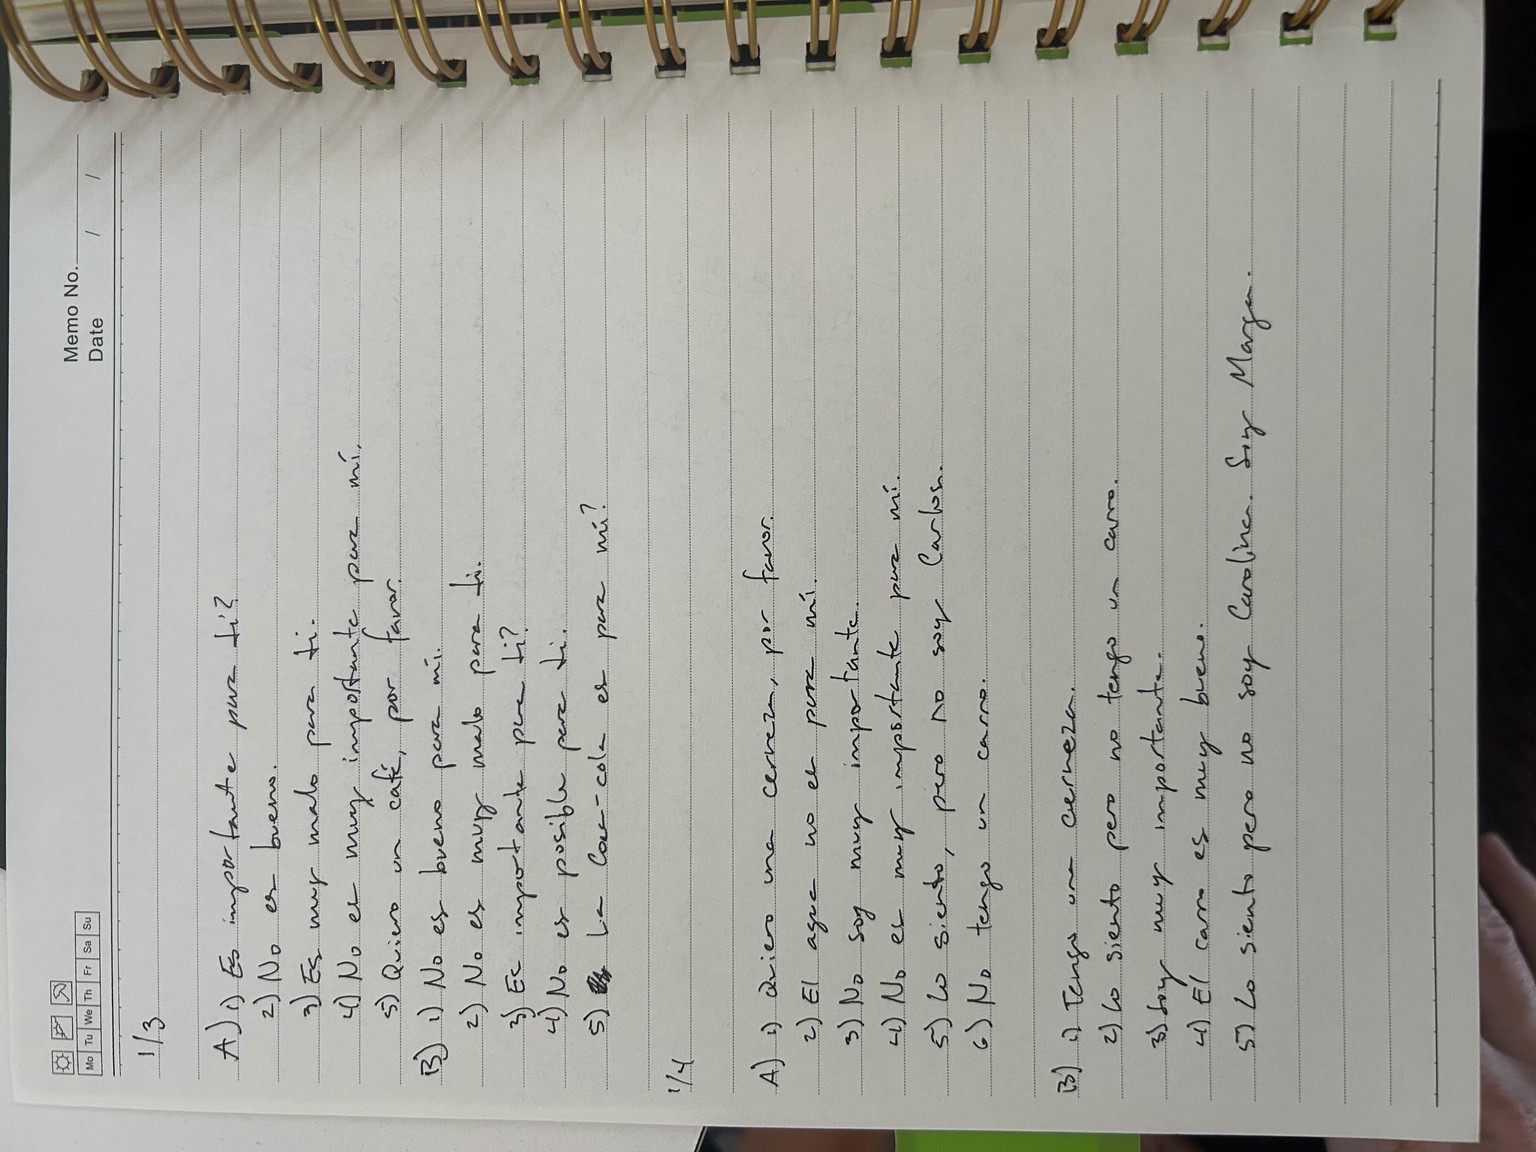 Memo No.
Date / /
Mo Tu We Th Fr Sa Su
1/3
A) 1) Es importante para ti?
2) No es bueno.
3) Es muy malo para ti.
4) No es muy importante para mí.
5) Quiero un café, por favor.
B) 1) No es bueno para mí.
2) No es muy malo para ti.
3) Es importante para ti?
4) No es posible para ti.
5) La Coca-cola es para mí?
1/4
A) 1) Quiero una cerveza, por favor.
2) El agua no es para mí.
3) No soy muy importante.
4) No es muy importante para mí.
5) Lo siento, pero no soy Carlos.
6) No tengo un carro.
B) 1) Tengo una cerveza.
2) Lo siento pero no tengo un carro.
3) Soy muy importante.
4) El carro es muy bueno.
5) Lo siento pero no soy Carolina. Soy